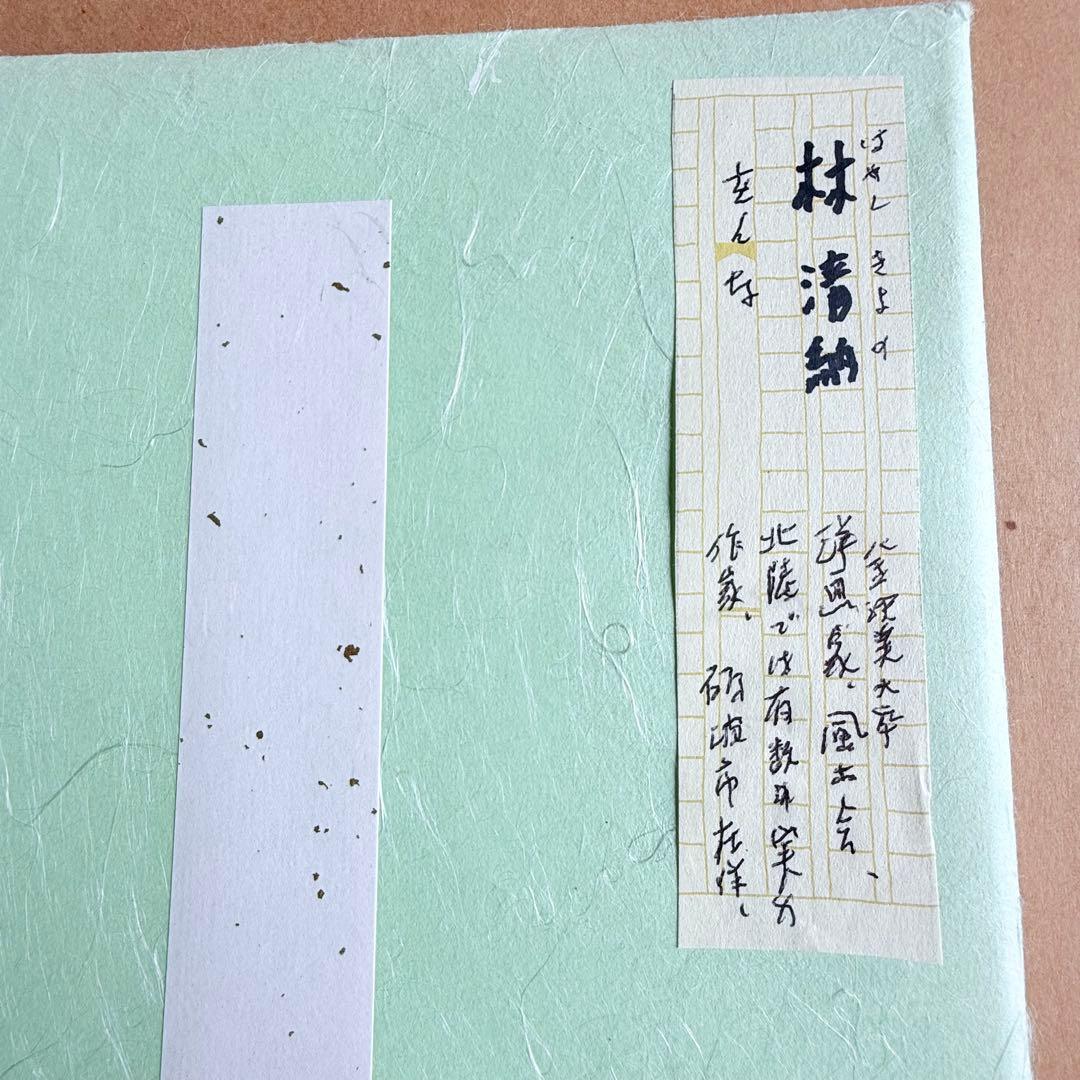 はやし きよの
林 清納
をんな
金沢美大卒
洋画家、風土会、
北陸では有数な実力
作家、 砺波市在住、